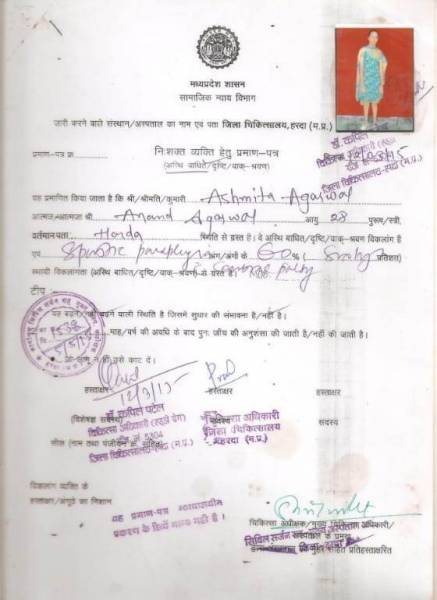 मध्यप्रदेश शासन
सामाजिक न्याय विभाग
जारी करने वाले संस्थान/अस्पताल का नाम एवं पता जिला चिकित्सालय, हरदा (म.प्र.)
प्रमाण-पत्र क्र.
निःशक्त व्यक्ति हेतु प्रमाण-पत्र
(अस्थि बाधित/दृष्टि/वाक्-श्रवण)
यह प्रमाणित किया जाता है कि श्री/श्रीमति/कुमारी Ashmita Agarwal
आत्मज/आत्मजा श्री Anand Agarwal आयु 28 पुरूष/स्त्री,
वर्तमान पता Harda स्थिति से ग्रस्त है। वे अस्थि बाधित/दृष्टि/वाक्-श्रवण विकलांग है
एवं Spastic अंग/अंगों के 60% ( Sixty प्रतिशत)
स्थायी विकलागता (अस्थि बाधित/दृष्टि/वाक्-श्रवण) से ग्रस्त है।
टीप
वाली स्थिति है जिसमें सुधार की संभावना है/नहीं है।
माह/बर्ष की अवधि के बाद पुनः जाँच की अनुशंसा की जाती है/नहीं की जाती है।
लागू न हो उसे काट दें।
12/3/15
हस्ताक्षर हस्ताक्षर हस्ताक्षर
डॉ. कपिल पटेल
(विशेषज्ञ सदस्य) चिकित्सा अधिकारी सदस्य
जिला चिकित्सालय
हरदा (म.प्र.)
सील (नाम तथा पंजीयन क्र. सहित)
जिला चिकित्सालय-हरदा (म.प्र.)
विकलांग व्यक्ति के
हस्ताक्षर/अंगूठे का निशान
यह प्रमाण-पत्र न्यायालयीन
प्रकरण के लिये मान्य नहीं है।
चिकित्सा अधीक्षक/मुख्य चिकित्सा अधिकारी/
अस्पताल के प्रमुख
मुहर सहित प्रतिहस्ताक्षरित